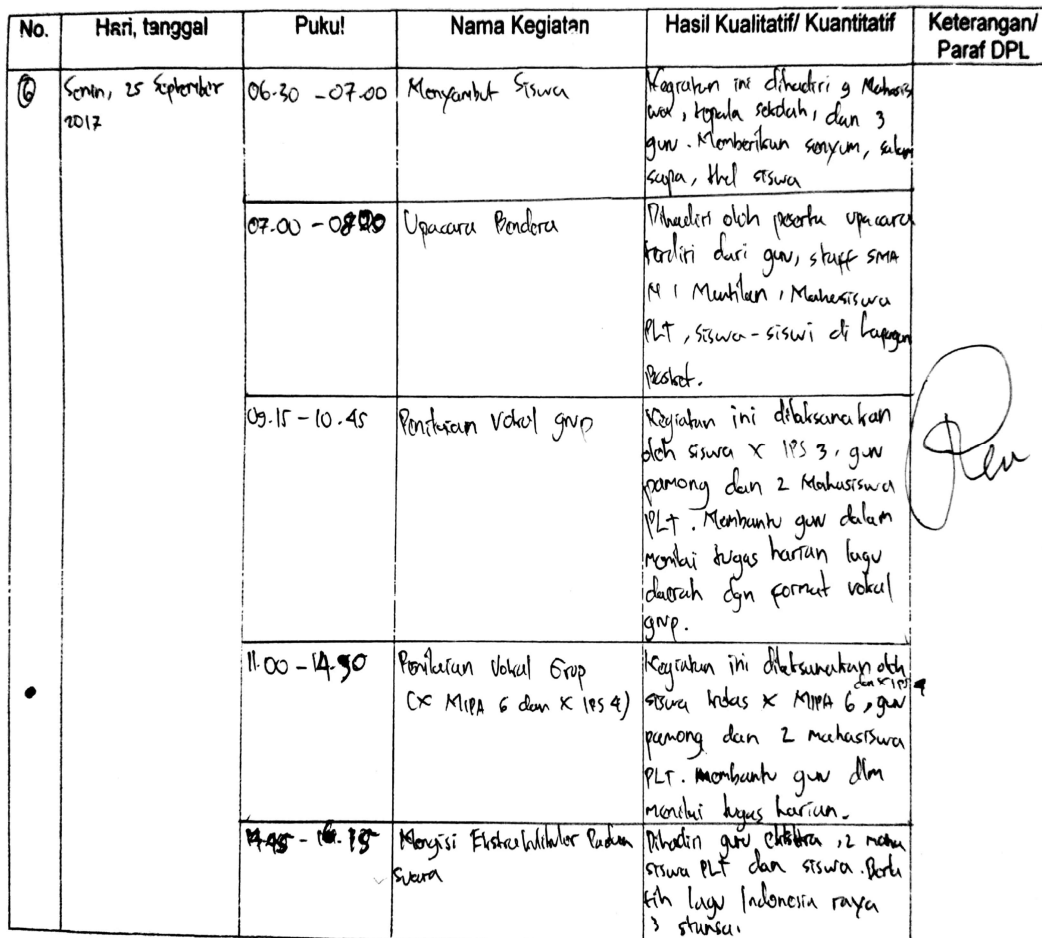 No. Hari, tanggal Pukul Nama Kegiatan Hasil Kualitatif/ Kuantitatif Keterangan/
Paraf DPL
6 Senin, 25 September
2017
06.30 - 07.00
Menyambut Siswa
Kegiatan ini dihadiri 9 Mahasis
wa, kepala sekolah, dan 3
guru. Memberikan senyum, salam
sapa, siswa
07.00 -
Upacara Bendera
Dihadiri oleh peserta upacara
terdiri dari guru, staff SMA
N 1 Muntilan, Mahasiswa
PLT, siswa-siswi di Lapangan
Basket.
09.15 - 10.45
Penilaian Vokal grup
Kegiatan ini dilaksanakan
oleh siswa X IPS 3, guru
pamong dan 2 Mahasiswa
PLT. Membantu guru dalam
menilai tugas harian lagu
daerah dgn format vokal
grup.
11.00 -
Penilaian Vokal Grup
(X MIPA 6 dan X IPS 4)
Kegiatan ini dilaksanakan oleh
dan X IPS 4
siswa kelas X MIPA 6, guru
pamong dan 2 mahasiswa
PLT. Membantu guru dlm
menilai tugas harian.
Mengisi Ekstrakulikuler Paduan
suara
Dihadiri guru ekstra, 2 maha
siswa PLT dan siswa. Berla
tih lagu Indonesia raya
3 stansa.